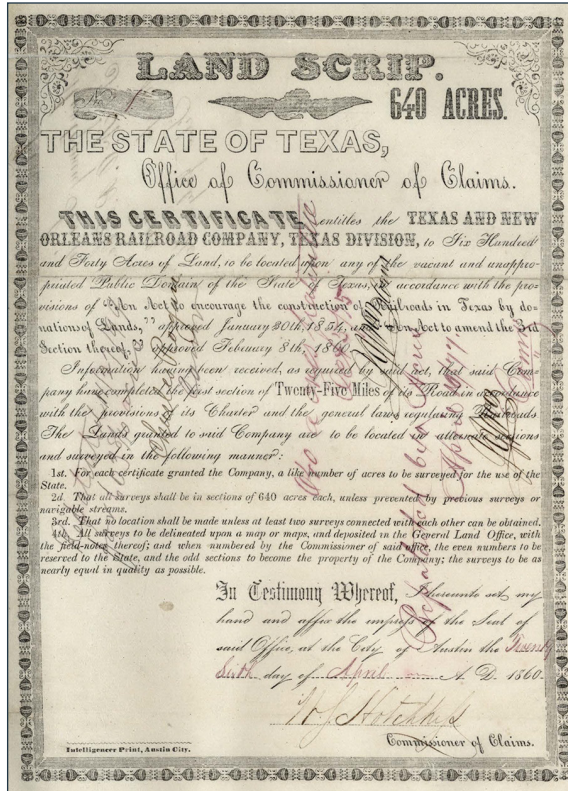 LAND SCRIP.
No. 1
640 ACRES.
THE STATE OF TEXAS,
Office of Commissioner of Claims.
THIS CERTIFICATE entitles the TEXAS AND NEW
ORLEANS RAILROAD COMPANY, TEXAS DIVISION, to Six Hundred
and Forty Acres of Land, to be located upon any of the vacant and unappro-
priated Public Domain of the State of Texas, in accordance with the pro-
visions of "An Act to encourage the construction of Railroads in Texas by do-
nations of Lands," approved January 30th 1854, and An Act to amend the 3rd
Section thereof, approved February 8th, 1860.
Information having been received, as required by said act, that said Com-
pany have completed the first section of Twenty-Five Miles of its Road in accordance
with the provisions of its Charter and the general laws regulating Railroads
The Lands granted to said Company are to be located in alternate sections
and surveyed in the following manner:
1st. For each certificate granted the Company, a like number of acres to be surveyed for the use of the
State.
2d. That all surveys shall be in sections of 640 acres each, unless prevented by previous surveys or
navigable streams.
3rd. That no location shall be made unless at least two surveys connected with each other can be obtained.
4th. All surveys to be delineated upon a map or maps, and deposited in the General Land Office, with
the field-notes thereof; and when numbered by the Commissioner of said office, the even numbers to be
reserved to the State, and the odd sections to become the property of the Company; the surveys to be as
nearly equal in quality as possible.
In Testimony Whereof, I hereunto set my
hand and affix the impress of the Seal of
said Office, at the City of Austin the Twenty
Sixth day of April A. D. 1860.
Commissioner of Claims.
Intelligencer Print, Austin City.